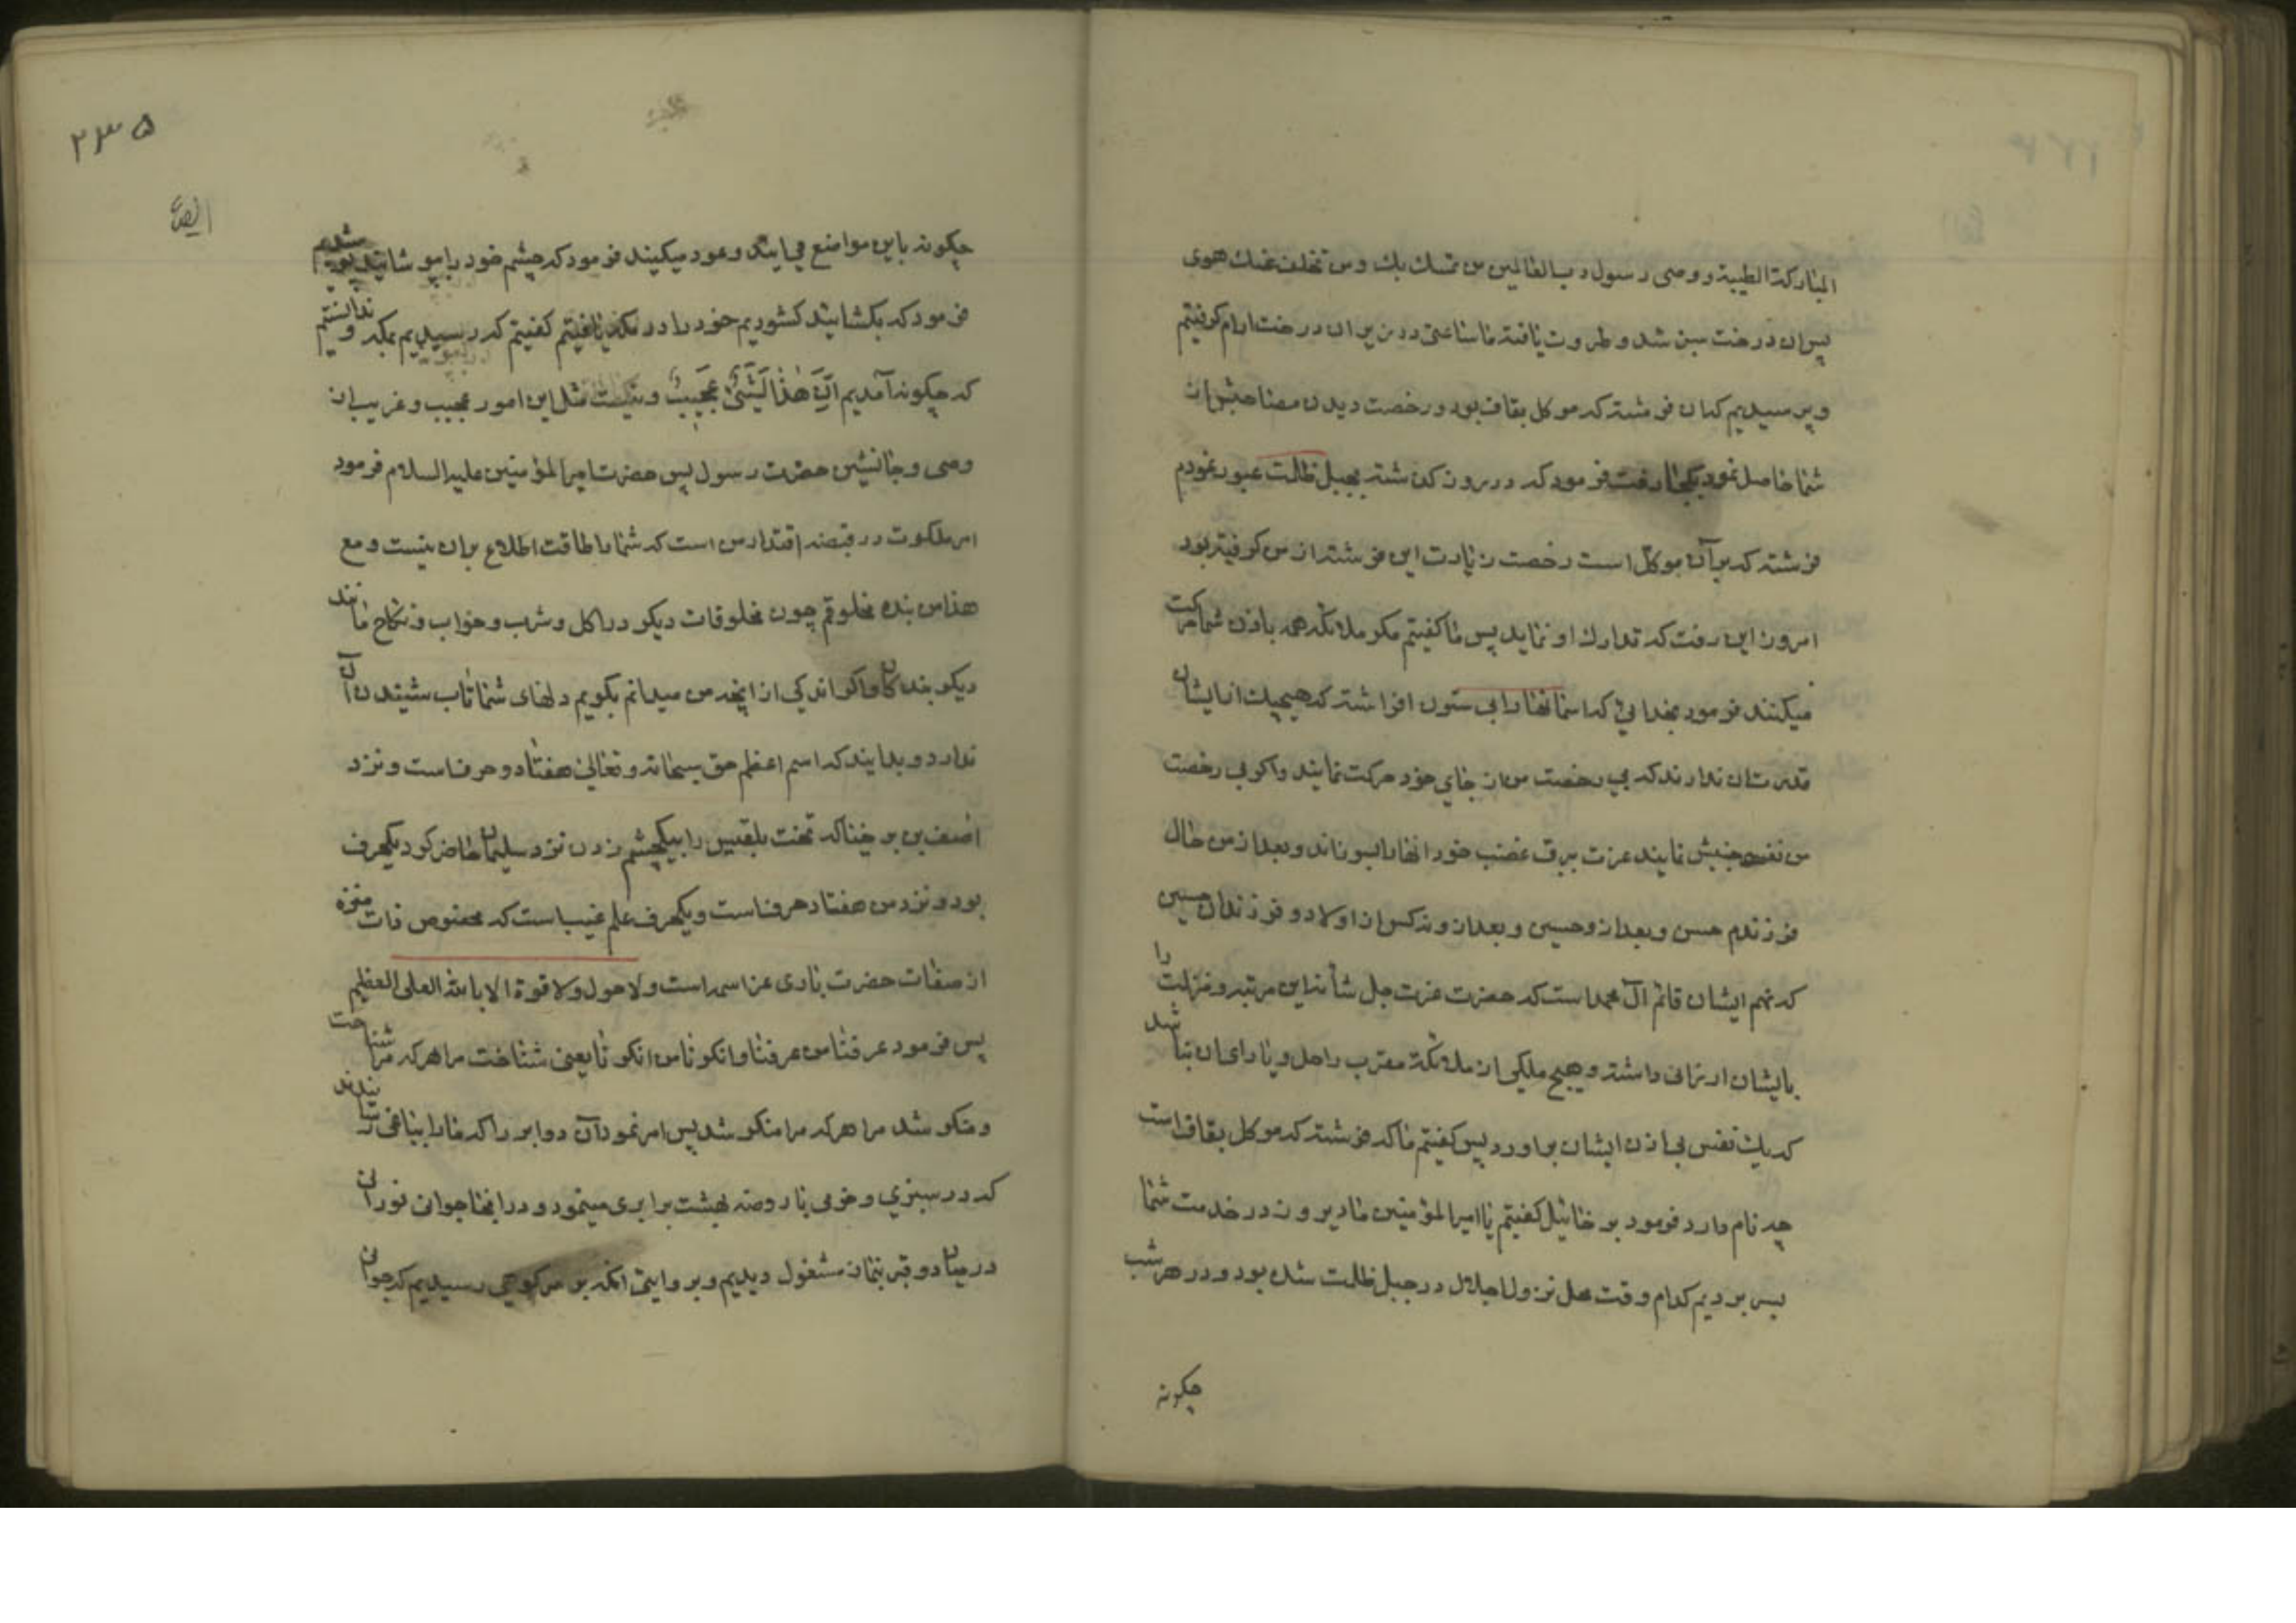 المبارکة الطیبة و وصی رسول رب العالمین من تمسک بک و من تخلف عنک هوی
پس ان درخت سبز شد و طروت یافته ما ساعتی در زیر ان درخت ارام کرفتیم
و پرسیدیم که ان فرشته که موکل بقاف بود و رخصت دیدن مصاحبش از
شما حاصل نمود بکجا رفت فرمود که در روز کذشته بجبل ظلمت عبور نمودم
فرشته که بر آن موکل است رخصت زیارت این فرشته از من کرفته بود
امروز این رفت که تدارک او نماید پس ما کفتیم مکر ملائکه همه باذن شما حرکت
میکنند فرمود بخدائی که اسمانها را بی ستون افراشته که هیچیک از ایشان
قدرت ان ندارند که بی رخصت من از جای خود حرکت نمایند و اکر بی رخصت
من جنبش نمایند عزت ببرق غضب خود انها را بسوزاند و بعد از من حال
فرزندم حسن و بعد از و حسین و بعد از و نه کس از اولاد و فرزندان حسین
که نهم ایشان قائم آل محمد است که حضرت عزت جل شأنه این مرتبه و منزلت را
بایشان ارزانی داشته و هیچ ملکی از ملائکه مقرب را حل و یارای ان نباشد
که یک نفس بی اذن ایشان براورد پس کفتیم ما که فرشته که موکل بقاف است
چه نام دارد فرمود برخائیل کفتیم یا امیر المؤمنین ما دیروز در خدمت شما
بسر بردیم کدام وقت محل نزول اجلال در جبل ظلمت شده بود و در هر شب
چکونه
۲۳۵
ایضا
چکونه باین مواضع می ایند و عود میکنید فرمود که چشم خود را بپوشانید شدیم
فرمود که بکشائید کشودیم خود را در مکه یافتیم کفتیم که رسیدیم بمکه و ندانستیم
که چکونه آمدیم اِنَّ هٰذَا لَشَیْءٌ عَجِیبٌ و نیست مثل این امور عجیب و غریب از
وصی و جانشین حضرت رسول پس حضرت امیر المؤمنین علیه السلام فرمود
امر ملکوت در قبضه اقتدار من است که شما را طاقت اطلاع بران نیست و مع
هذا من بنده مخلوقم چون مخلوقات دیکر در اکل و شرب و خواب و نکاح مانند
دیکر بندکان و اکر اندکی از انچه من میدانم بکویم دلهای شما تاب شنیدن آن
ندارد و بدانید که اسم اعظم حق سبحانه و تعالی هفتاد و دو حرف است و نزد
اصف بن برخیا که تخت بلقیس را بیکچشم زدن نزد سلیمان حاضر کرد یکحرف
بود و نزد من هفتاد حرف است و یکحرف علم غیب است که مخصوص ذات منزه
از صفات حضرت باری عز اسمه است و لا حول و لا قوة الا بالله العلی العظیم
پس فرمود عرفنا من عرفنا و انکرنا من انکرنا یعنی شناخت ما هر که مرا شناخت
و منکر شد مرا هر که مرا منکر شد پس امر نمود آن دو ابر را که ما را بباغی رسانیدند
که در سبزی و خرمی با روضه بهشت برابری مینمود و در انجا جوان نورانی
در میان دو قبر بنماز مشغول دیدیم و بروایتی انکه بر سر کوهی رسیدیم که جوانی